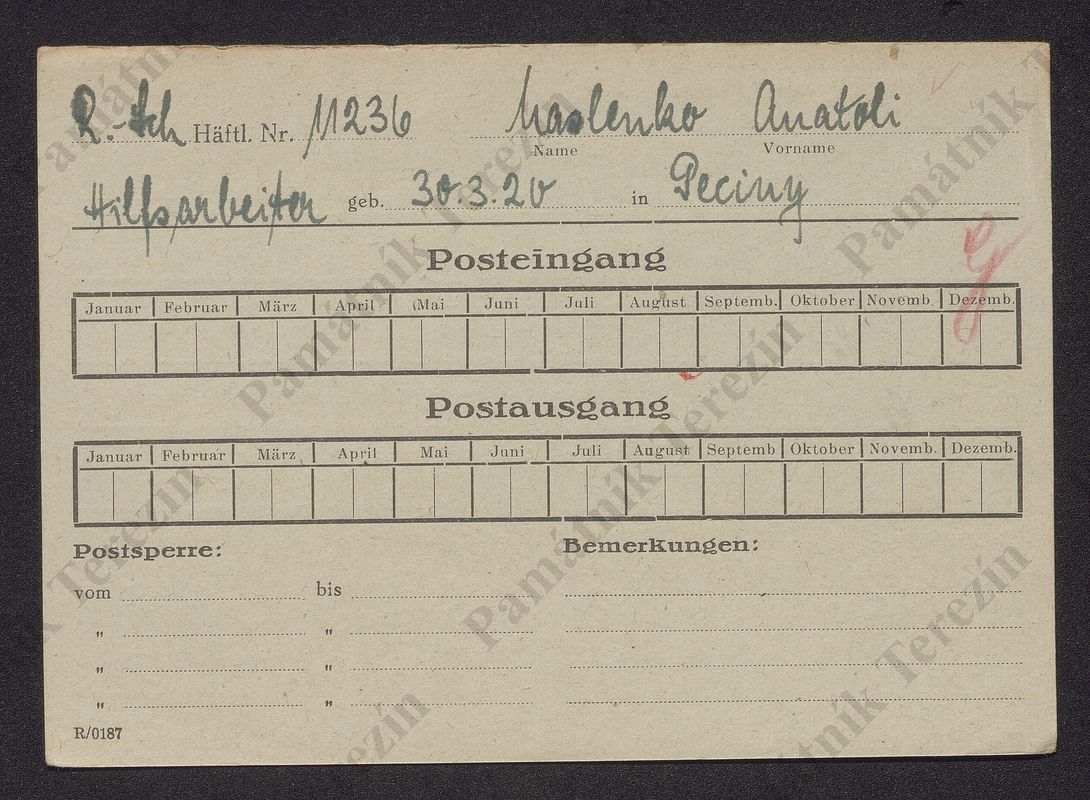 R.-Sch Häftl. Nr. 11236 Maslenko Anatoli
Name Vorname
Hilfsarbeiter geb. 30.3.20 in Peciny
Posteingang
Januar Februar März April Mai Juni Juli August Septemb. Oktober Novemb. Dezemb.
Postausgang
Januar Februar März April Mai Juni Juli August Septemb Oktober Novemb. Dezemb.
Postsperre: Bemerkungen:
vom bis
" "
" "
" "
R/0187
Památník Terezín